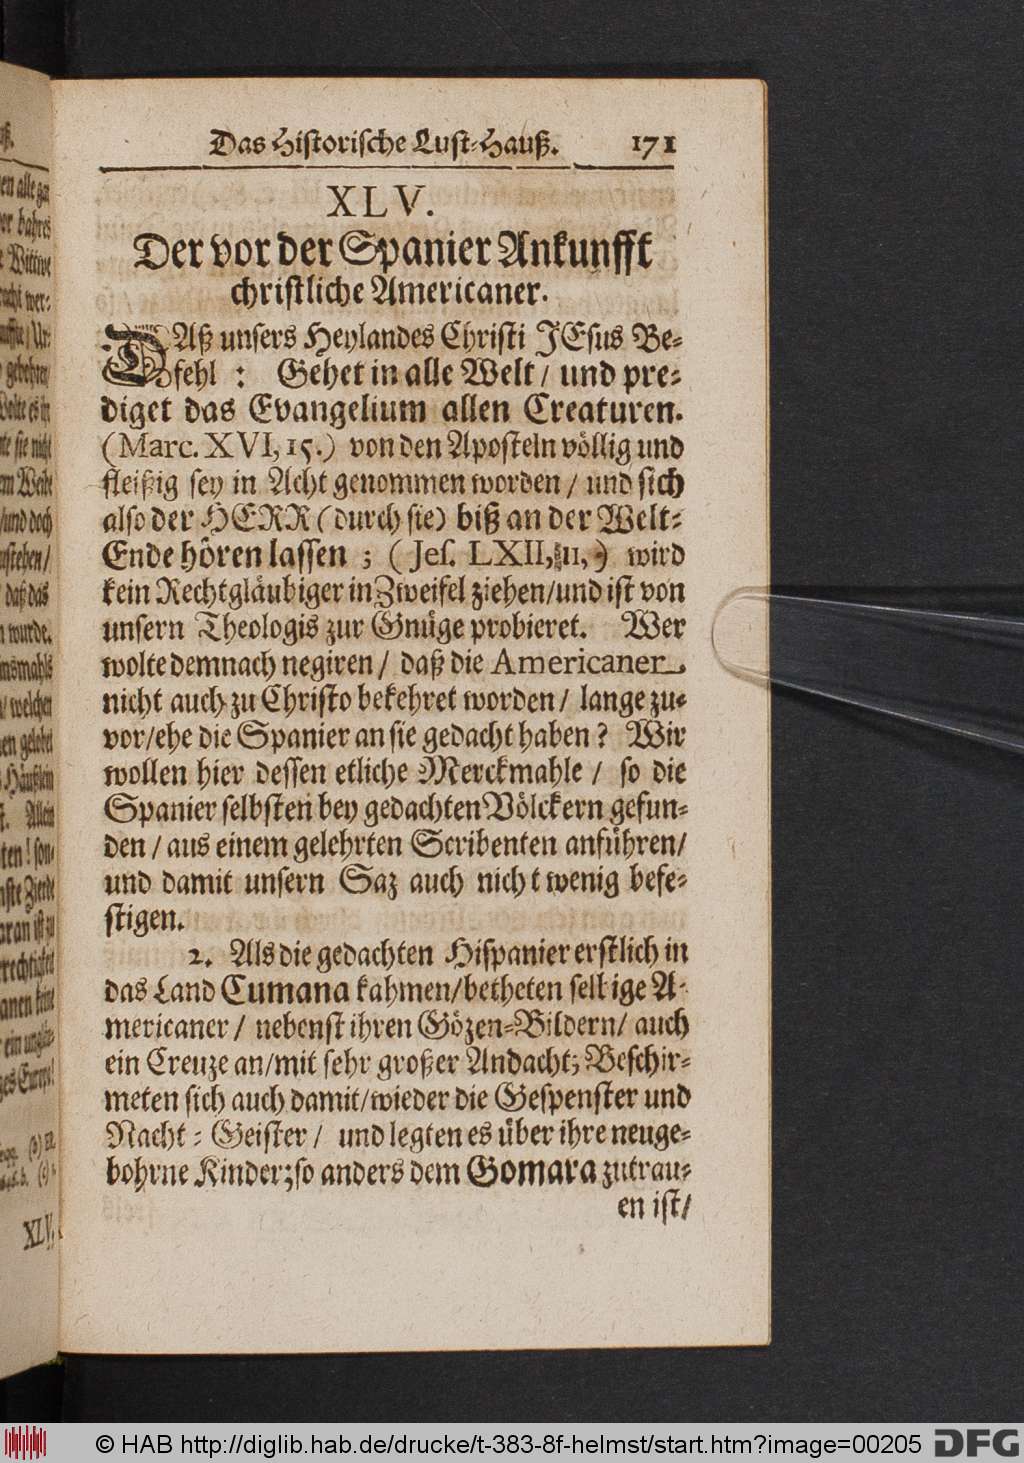 Das Historische Lust-Hauß. 171
XLV.
Der vor der Spanier Ankunfft
christliche Americaner.
DAß unsers Heylandes Christi JEsus Be-
fehl : Gehet in alle Welt / und pre-
diget das Evangelium allen Creaturen.
(Marc. XVI, 15.) von den Aposteln völlig und
fleißig sey in Acht genommen worden / und sich
also der HERR (durch sie) biß an der Welt-
Ende hören lassen ; (Jes. LXII, 11,) wird
kein Rechtgläubiger in Zweifel ziehen/und ist von
unsern Theologis zur Gnüge probieret. Wer
wolte demnach negiren / daß die Americaner
nicht auch zu Christo bekehret worden / lange zu-
vor/ehe die Spanier an sie gedacht haben? Wir
wollen hier dessen etliche Merckmahle / so die
Spanier selbsten bey gedachten Völckern gefun-
den / aus einem gelehrten Scribenten anführen/
und damit unsern Saz auch nicht wenig befe-
stigen.
2. Als die gedachten Hispanier erstlich in
das Land Cumana kahmen/betheten selbige A-
mericaner / nebenst ihren Gözen-Bildern/ auch
ein Creuze an/mit sehr großer Andacht; Beschir-
meten sich auch damit/wieder die Gespenster und
Nacht-Geister / und legten es über ihre neuge-
bohrne Kinder; so anders dem Gomara zutrau-
en ist/
XLV.
© HAB http://diglib.hab.de/drucke/t-383-8f-helmst/start.htm?image=00205 DFG